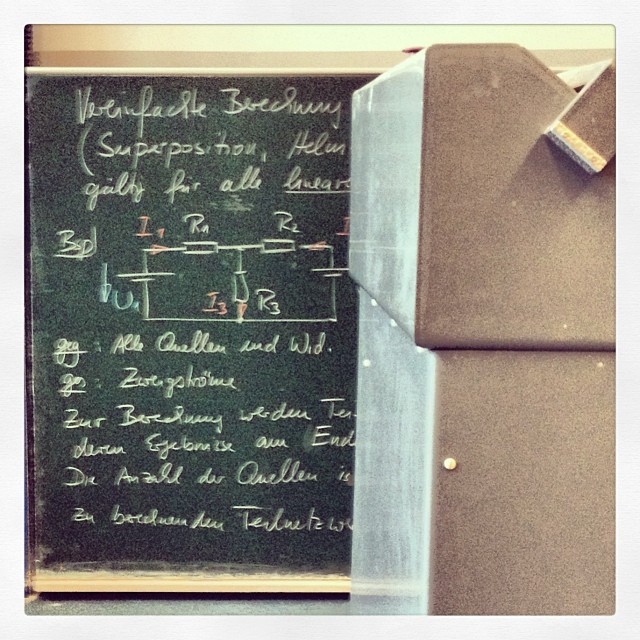 Vereinfachte Berechnung
(Superposition, Helm
gültg für alle lineare
Bsp I1 R1 R2 I
U1 I3 R3
geg: Alle Quellen und Wid.
ges: Zweigströme
Zur Berechnung werden Tei
deren Ergebnisse am End
Die Anzahl der Quellen is
zu berechnenden Teilnetzwe